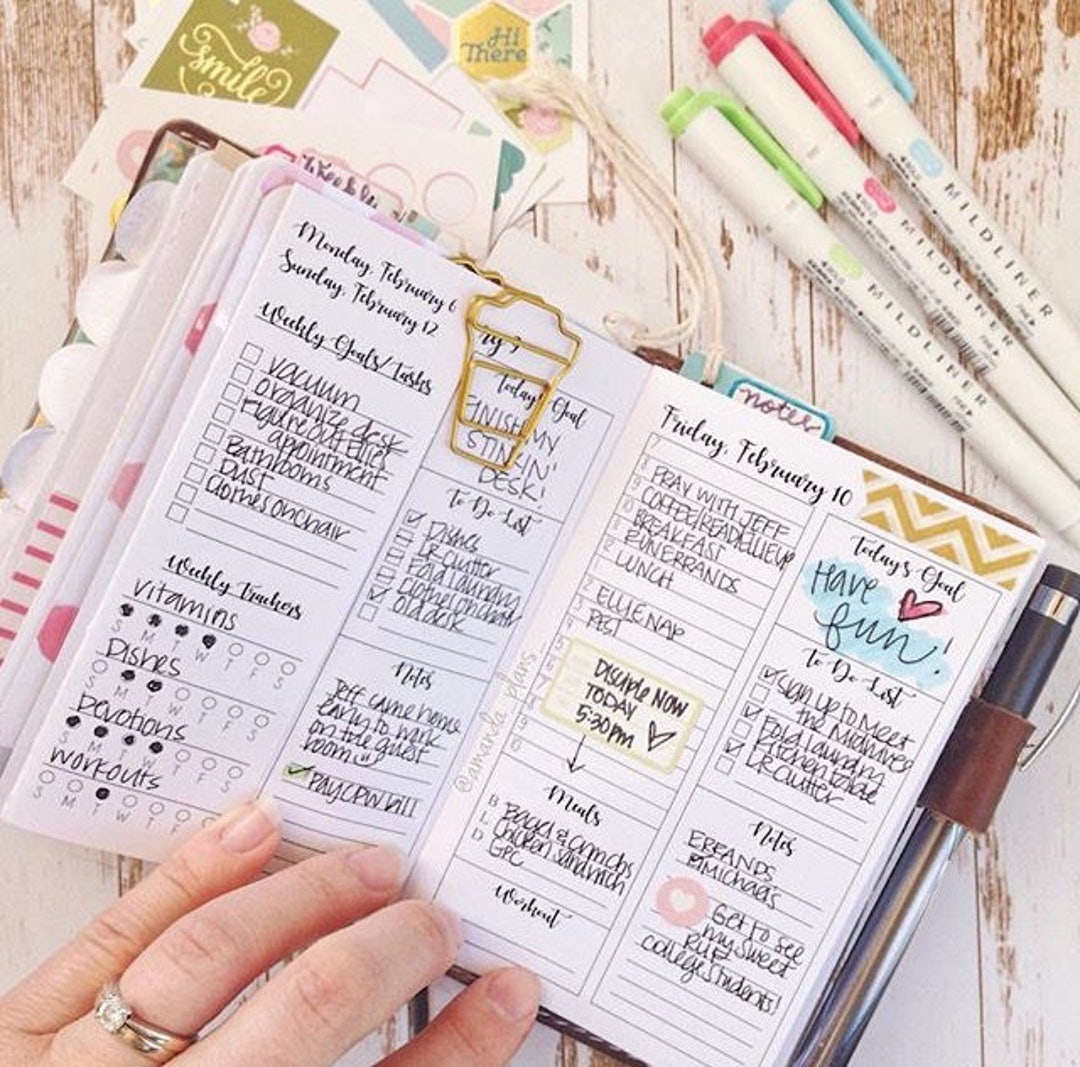 smile
Hi
There
Weekly
MILDLINER
MILDLINER
MILDLINER
notes
Monday, February 6
Sunday, February 12
Weekly Goals/Tasks
vacuum
organize desk
Figure out Ellie's
appointment
Bathrooms
Dust
Clothes on chair
Weekly Trackers
Vitamins
S M T W T F S
Dishes
S M T W T F S
Devotions
S M T W T F S
Workouts
S M T W T F
Today's Goal
FINISH MY
STINKIN'
DESK!
To Do List
Dishes
LR clutter
Fold laundry
Clothes on chair
old desk
Notes
Jeff came home
early to work
on the guest
room
Pay CPW bill
@amanda_plans
Friday, February 10
7
8 PRAY WITH JEFF
9 COFFEE/READ
10 BREAKFAST
11 RUN ERRANDS
12 LUNCH
1
2 ELLIE NAP
3 REST
4
5
DISCIPLE NOW
TODAY
5:30pm
Meals
B Bagel &
L Chicken Sandwich
D GPC
Workout
Today's Goal
Have
fun!
To Do List
Sign up to Meet
the Midwives
Fold laundry
Kitchen table
LR clutter
Notes
ERRANDS
Michaels
Get to see
my sweet
college students!